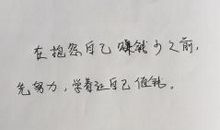 在抱怨自己赚钱少之前,
先努力,学着让自己值钱。